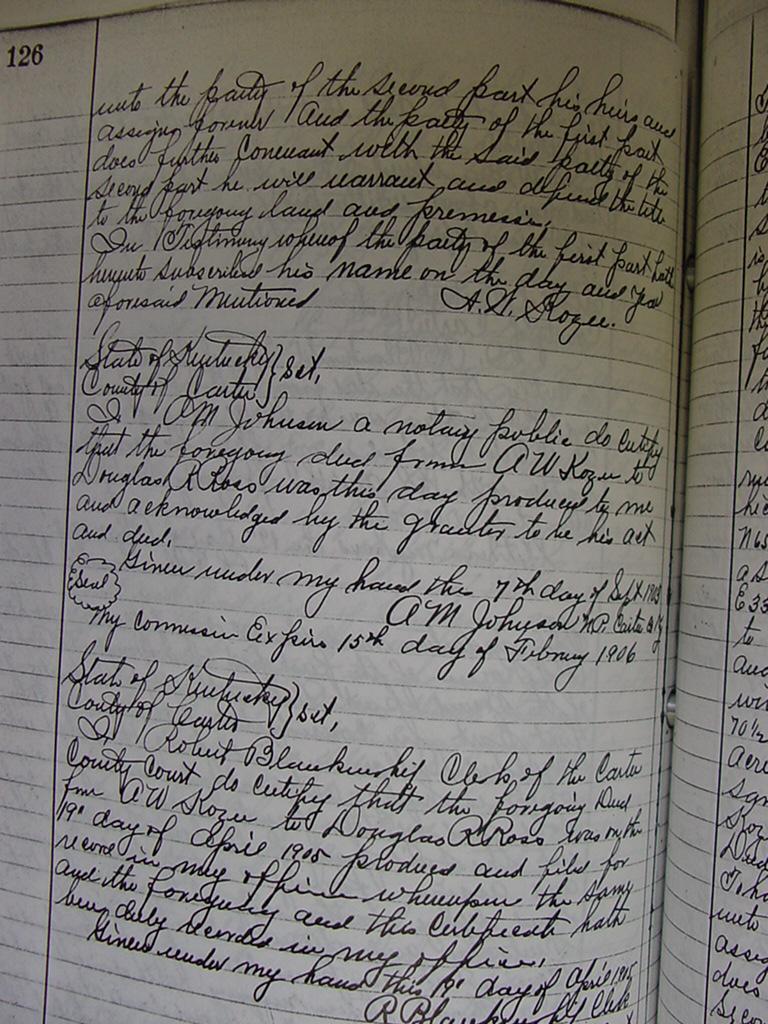 126
unto the party of the second part his heirs and
assigns forever And the party of the first part
does further Convenant with the said party of the
second part he will warrant and defend the title
to the foregoing land and premesis,
In Testimony whereof the party of the first part hath
hereunto subscribed his name on the day and year
aforesaid Mentioned A.W. Kozee.
State of Kentucky } Sct,
County of Carter
I AM Johnson a notary public do Certify
that the foregoing deed from A W Kozee to
Douglas R Ross was this day produced to me
and acknowledged by the grantor to be his act
and deed.
Given under my hand this 7th day of Sept 1903
Seal A M Johnson N.P. Carter Co Ky
My Commission Expires 15th day of Februay 1906
State of Kentucky } Sct,
County of Carter
I Robert Blankenship Clerk of the Carter
County Court do certify that the foregoing Deed
from A W Kozee to Douglas R Ross was on the
19" day of April 1905 produced and filed for
record in my office whereupon the same
and the foregoing and this Certificate hath
been duly recorded in my office.
Given under my hand this 19" day of April 1905
R Blankenship Clerk
N65
E 33
to
and
70 1/2
unto
does